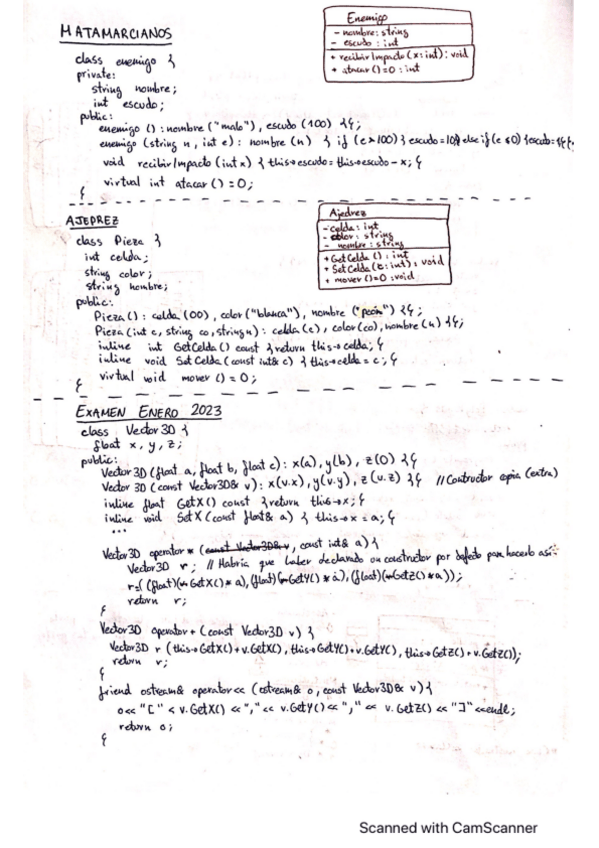 MATAMARCIANOS
Enemigo
- nombre: string
- escudo: int
+ recibirImpacto (x:int): void
+ atacar ()=0: int
class enemigo {
private:
string nombre;
int escudo;
public:
enemigo () : nombre ("malo"), escudo (100) {};
enemigo (string n, int e): nombre (n) { if (e>100) escudo=100; else if (e≤0) escudo=
void recibirImpacto (int x) { this→escudo = this→escudo - x; }
virtual int atacar () = 0;
}
AJEDREZ
Ajedrez
- celda: int
- color: string
- nombre: string
+ GetCelda (): int
+ SetCelda (c:int): void
+ mover ()=0: void
class Pieza {
int celda;
string color;
string nombre;
public:
Pieza () : celda (00), color ("blanca"), nombre ("peón") {};
Pieza (int c, string co, string n) : celda (c), color (co), nombre (n) {};
inline int GetCelda () const { return this→celda; }
inline void SetCelda (const int& c) { this→celda = c; }
virtual void mover () = 0;
}
EXAMEN ENERO 2023
class Vector 3D {
float x, y, z;
public:
Vector 3D (float a, float b, float c) : x(a), y(b), z(0) {}
Vector 3D (const Vector3D& v) : x(v.x), y(v.y), z(v.z) {} //Contructor copia (extra)
inline float GetX() const { return this→x; }
inline void SetX (const float& a) { this→x = a; }
...
Vector3D operator * (const Vector3D& v, const int& a) {
Vector3D r; // Habría que haber declarado un constructor por defecto para hacerlo así
r=( (float)(GetX() * a), (float)(GetY() * a), (float)(GetZ() * a));
return r;
}
Vector3D operator + (const Vector3D v) {
Vector3D r (this→GetX()+v.GetX(), this→GetY()+v.GetY(), this→GetZ()+v.GetZ());
return r;
}
friend ostream& operator<< (ostream& o, const Vector3D& v) {
o<< "[" < v.GetX() << "," << v.GetY() << "," << v.GetZ() << "]" <<endl;
return o;
}
Scanned with CamScanner